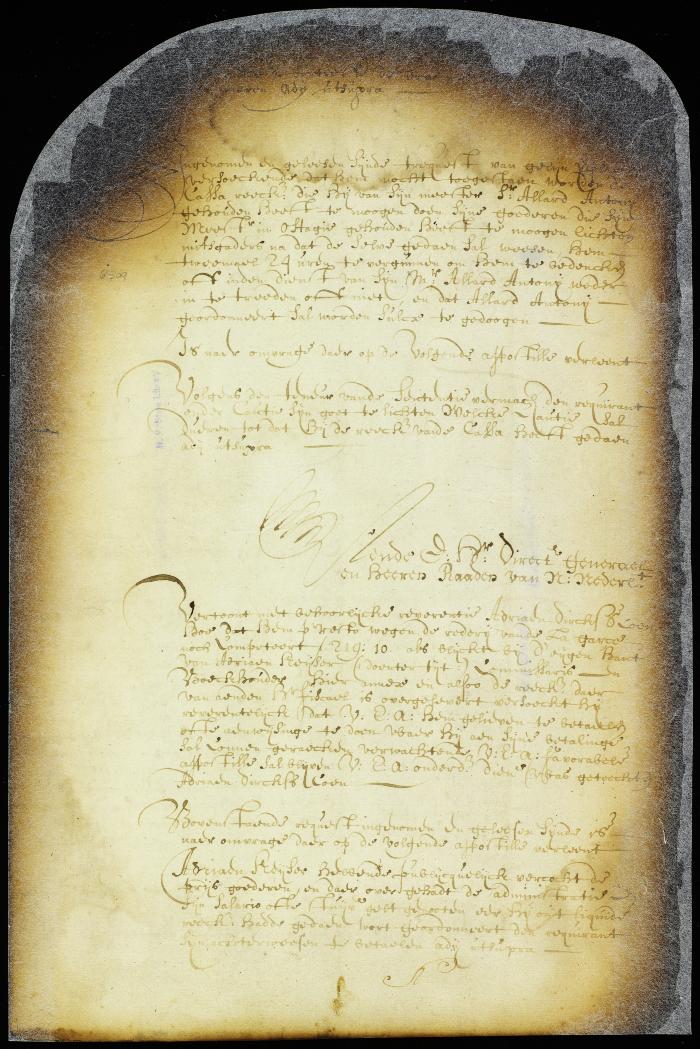 Ady utsupra
Ingenomen en gelesen sijnde 't request van
versoeckende dat hem mocht toegestaen worden
Cassa reeck: die hij van sijn meester Sr. Allard Antony
gehouden heeft te moogen doen sijne goederen die sijn
Meestr in Ostagie gehouden heeft te moogen lichten
mitsgaders na dat de selve gedaen sal weesen, hem
tweemael 24 uren te vergunnen om hem te bedencken
oft inden dienst van sijn Mr. Allard Antony weder
in te treeden oft niet, en dat Allard Antony
geordonneert sal worden sulcx te gedoogen
Is naer omvrage daer op de volgende appostille verleent
Volgens den teneur vande sententie vermach den requirant
onder Cautie sijn goet te lichten Welcke Cautie sal
dueren tot dat hij de reeck vande Cassa heeft gedaen
ady utsupra
Aende E: Hr. Directr. Generael
en Heeren Raaden van N: Nederlt.
Vertoont met behoorlijcke reverentie Adriaen Dircksz Coen
hoe dat hem pr resto wegen de rederij vande La garce
noch Competeert f 219: 10. als blijckt bij d'eygen hant
van Adriaen Keijser (doenter tijt) Commissaris en
Boeckhouder hier annex en alsoo de reeck daer
van aenden Hr fiscael is overgelevert versoeckt hij
reverentelijck dat U: E: A: hem gelieven te betaelen
ofte aenwijsinge te doen waer hij aen sijne betalinge
sal konnen geraecken verwachtende U: E: A: favorabele
appostille sal blijven U: E: A: onderd: Dienr (was geteeckt)
Adriaen Dircksz Coen
Bovenstaende request ingenomen en gelesen sijnde is
naer omvrage daer op de volgende appostille verleent
Adriaen Keijser hebbende publijcquelijck vercocht de
prijs goederen, en daer over gehadt de administratie
sijn salario ofte genoten eer hij
reeck: hadde gedaen wort geordonneert den requirant
te betaelen ady utsupra